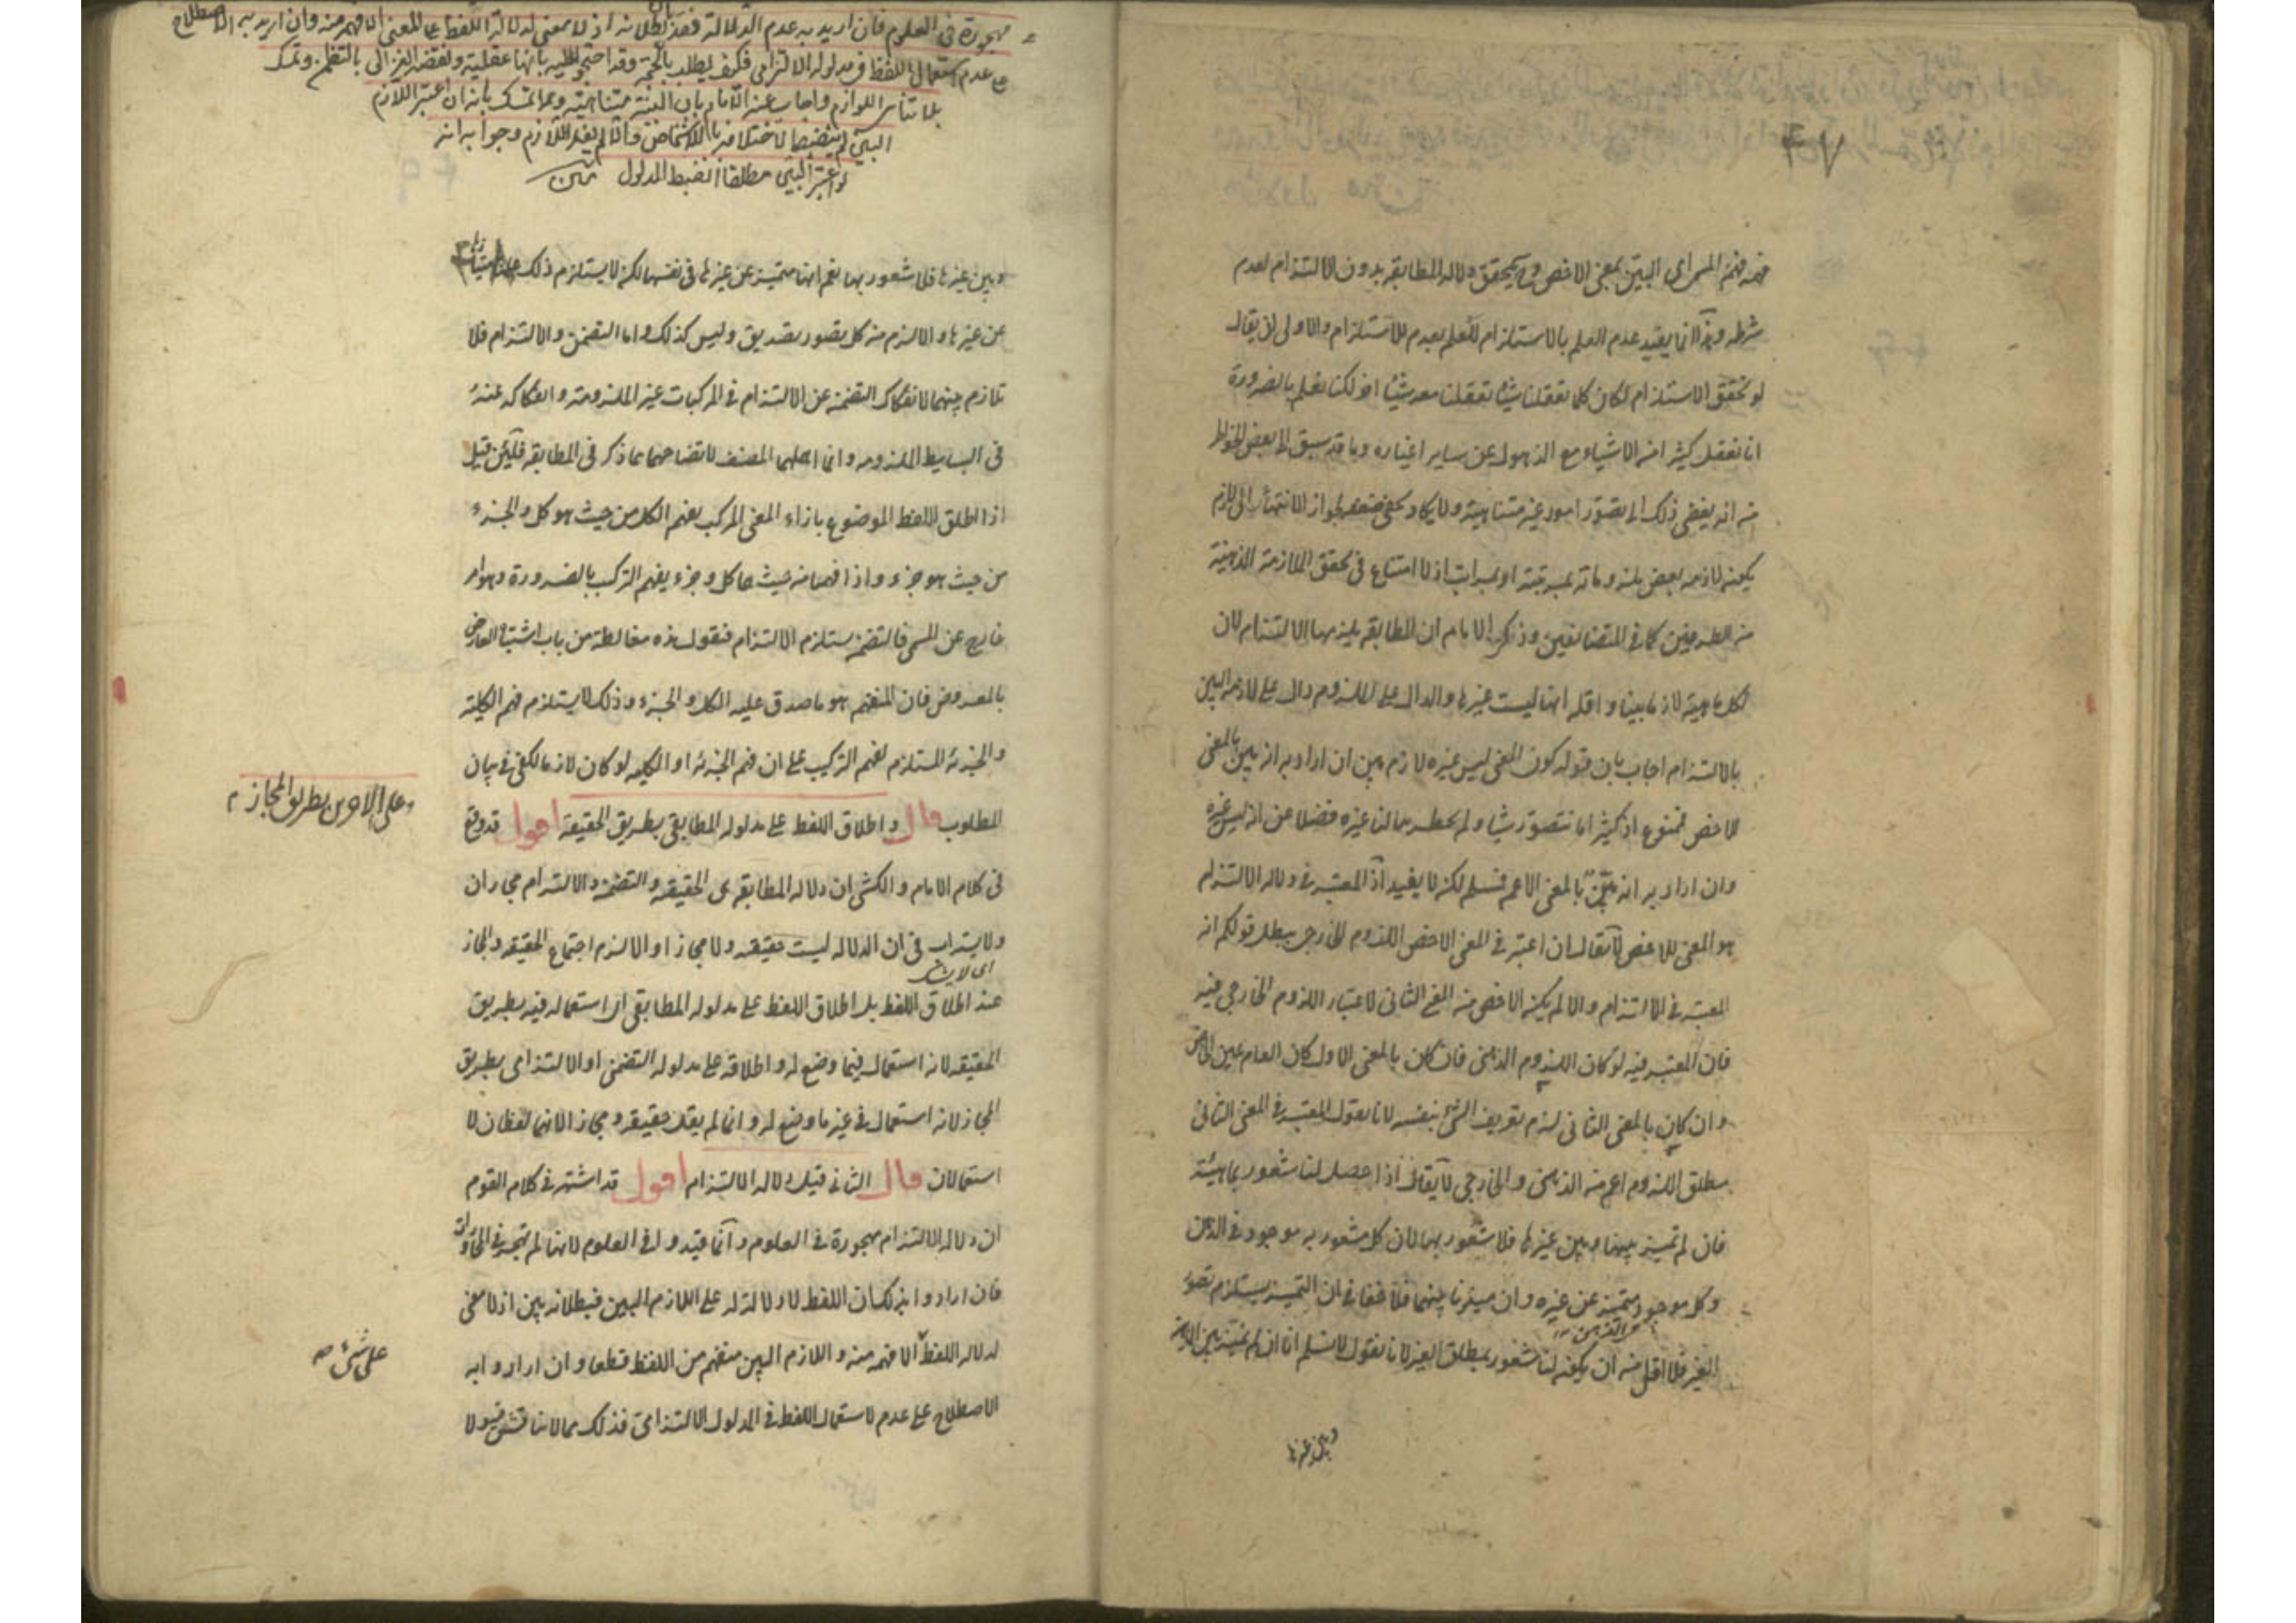 ٧٣
فهمه فهم المسمى اى البين بمعنى الاخص وح يتحقق دلالة المطابقة بدون الالتزام لعدم
شرطه وهذا انما يفيد عدم العلم بالاستلزام لا العلم بعدم الاستلزام والاولى ان يقال
لو تحقق الاستلزام لكان كلما تعقلنا شيئا تعقلنا معه شيئا اخر لكنا نعلم بالضرورة
انا نعقل كثيرا من الاشياء مع الذهول عن ساير اغياره وما قد سبق الى بعض الخواطر
من انه يفضى ذلك الى تصور امور غير متناهية ولا يكاد يخفى ضعفه لجواز الانتهاء الى لازم
يكون لازمه بعض ملزوماته بمرتبة او بمراتب اذ لا امتناع فى تحقق الملازمة الذهنية
من الطرفين كما فى المتضايفين وذكر الامام ان المطابقة يلزمها الالتزام لان
لكل ماهية لازما بينا واقله انها ليست غيرها والدال على الملزوم دال على لازمه البين
بالالتزام اجاب بان قوله كون المعنى ليس غيره لازم بين ان اراد به انه بين بالمعنى
الاخص فممنوع اذ كثيرا ما نتصور شيئا ولم يخطر ببالنا غيره فضلا عن انه ليس غيره
وان اراد به انه بين بالمعنى الاعم فمسلم لكن لا يفيد اذ المعتبر فى دلالة الالتزام
هو المعنى الاخص لا يقال ان اعتبر فى المعنى الاخص اللزوم الخارجى بطل قولكم انه
المعتبر فى الالتزام والا لم يكن الاخص من المعنى الثانى لاعتبار اللزوم الخارجى فيه
فان المعتبر فيه لو كان اللزوم الذهنى فان كان بالمعنى الاول كان العام عين الخاص
وان كان بالمعنى الثانى لزم تعريف الشئ بنفسه لانا نقول المعتبر فى المعنى الثانى
مطلق اللزوم اعم من الذهنى والخارجى لا يقال اذا حصل لنا شعور بماهية
فان لم تميز بينها وبين غيرها فلا شعور بها لان كل مشعور به موجود فى الذهن
وكل موجود متميز عن غيره وان ميزنا بينهما فلا خفا فى ان التميز يستلزم تصور
الغير فلا اقل من ان يكون لنا شعور بمطلق الغير لانا نقول لا نسلم انا ان لم نميز بين الماهية
وبين غيرها
مهجورة فى العلوم فان اريد به عدم الدلالة فقد بان بطلانه اذ لا معنى لدلالة اللفظ على المعنى الا فهمه منه وان اريد به الاصطلاح
على عدم استعمال اللفظ فى مدلوله الالتزامى فكيف يطلب بالحجة وقد احتج عليه بانها عقلية ونقضه الغزالى بالتضمن وتمسك
بلا تناهى اللوازم واجاب عنه الامام بان البينة متناهية وربما تمسك بانه ان اعتبر اللازم
البين لم ينضبط لاختلافه بالاشخاص والا لم يفد اللازم وجوابه انه
لو اعتبر البين مطلقا انضبط المدلول متن
وبين غيرها فلا شعور بها نعم انها متميزة عن غيرها فى نفسها لكن لا يستلزم ذلك علمنا بامتيازها
عن غيرها والا لزم من كل تصور تصديق وليس كذلك واما التضمن والالتزام فلا
تلازم بينهما لانفكاك التضمن عن الالتزام فى المركبات غير الملزومة وانفكاكه عنه
فى البسايط الملزومة وانما اهملهما المصنف لاتضاحهما مما ذكر فى المطابقة فلئن قيل
اذا اطلق اللفظ الموضوع بازاء المعنى المركب يفهم الكل من حيث هو كل والجزء
من حيث هو جزء واذا فهما من حيث هما كل وجزء يفهم التركب بالضرورة وهو امر
خارج عن المسمى فالتضمن يستلزم الالتزام فنقول هذه مغالطة من باب اشتباه العارض
بالمعروض فان المنفهم هو ما صدق عليه الكل والجزء وذلك لا يستلزم فهم الكلية
والجزئية المستلزم لفهم التركيب على ان فهم الجزئية او الكلية لو كان لازما لكفى فى بيان
المطلوب قال واطلاق اللفظ على مدلوله المطابقى بطريق الحقيقة اقول قد وقع
وعلى الاخرين بطريق المجاز م
فى كلام الامام والكشى ان دلالة المطابقة هى الحقيقة والتضمن والالتزام مجازان
ولا يستراب فى ان الدلالة ليست حقيقة ولا مجازا والا لزم اجتماع الحقيقة والمجاز
اى لا يشك
عند اطلاق اللفظ بل اطلاق اللفظ على مدلوله المطابقى اى استعماله فيه بطريق
الحقيقة لانه استعمال فيما وضع له واطلاقه على مدلوله التضمنى او الالتزامى بطريق
المجاز لانه استعمال فى غير ما وضع له وانما لم يقل حقيقة ومجاز لانهما لفظان لا
استعمالان قال الثانى قيل دلالة الالتزام اقول قد اشتهر فى كلام القوم
ان دلالة الالتزام مهجورة فى العلوم وانما قيدوا فى العلوم لانها لم تهجر فى المحاورات
فان ارادوا بذلك ان اللفظ لا دلالة له على اللازم البين فبطلانه بين اذ لا معنى
لدلالة اللفظ الا فهمه منه واللازم البين منفهم من اللفظ قطعا وان ارادوا به
على شئ صح
الاصطلاح على عدم استعمال اللفظ فى المدلول الالتزامى فذلك مما لا يناقش فيه ولا